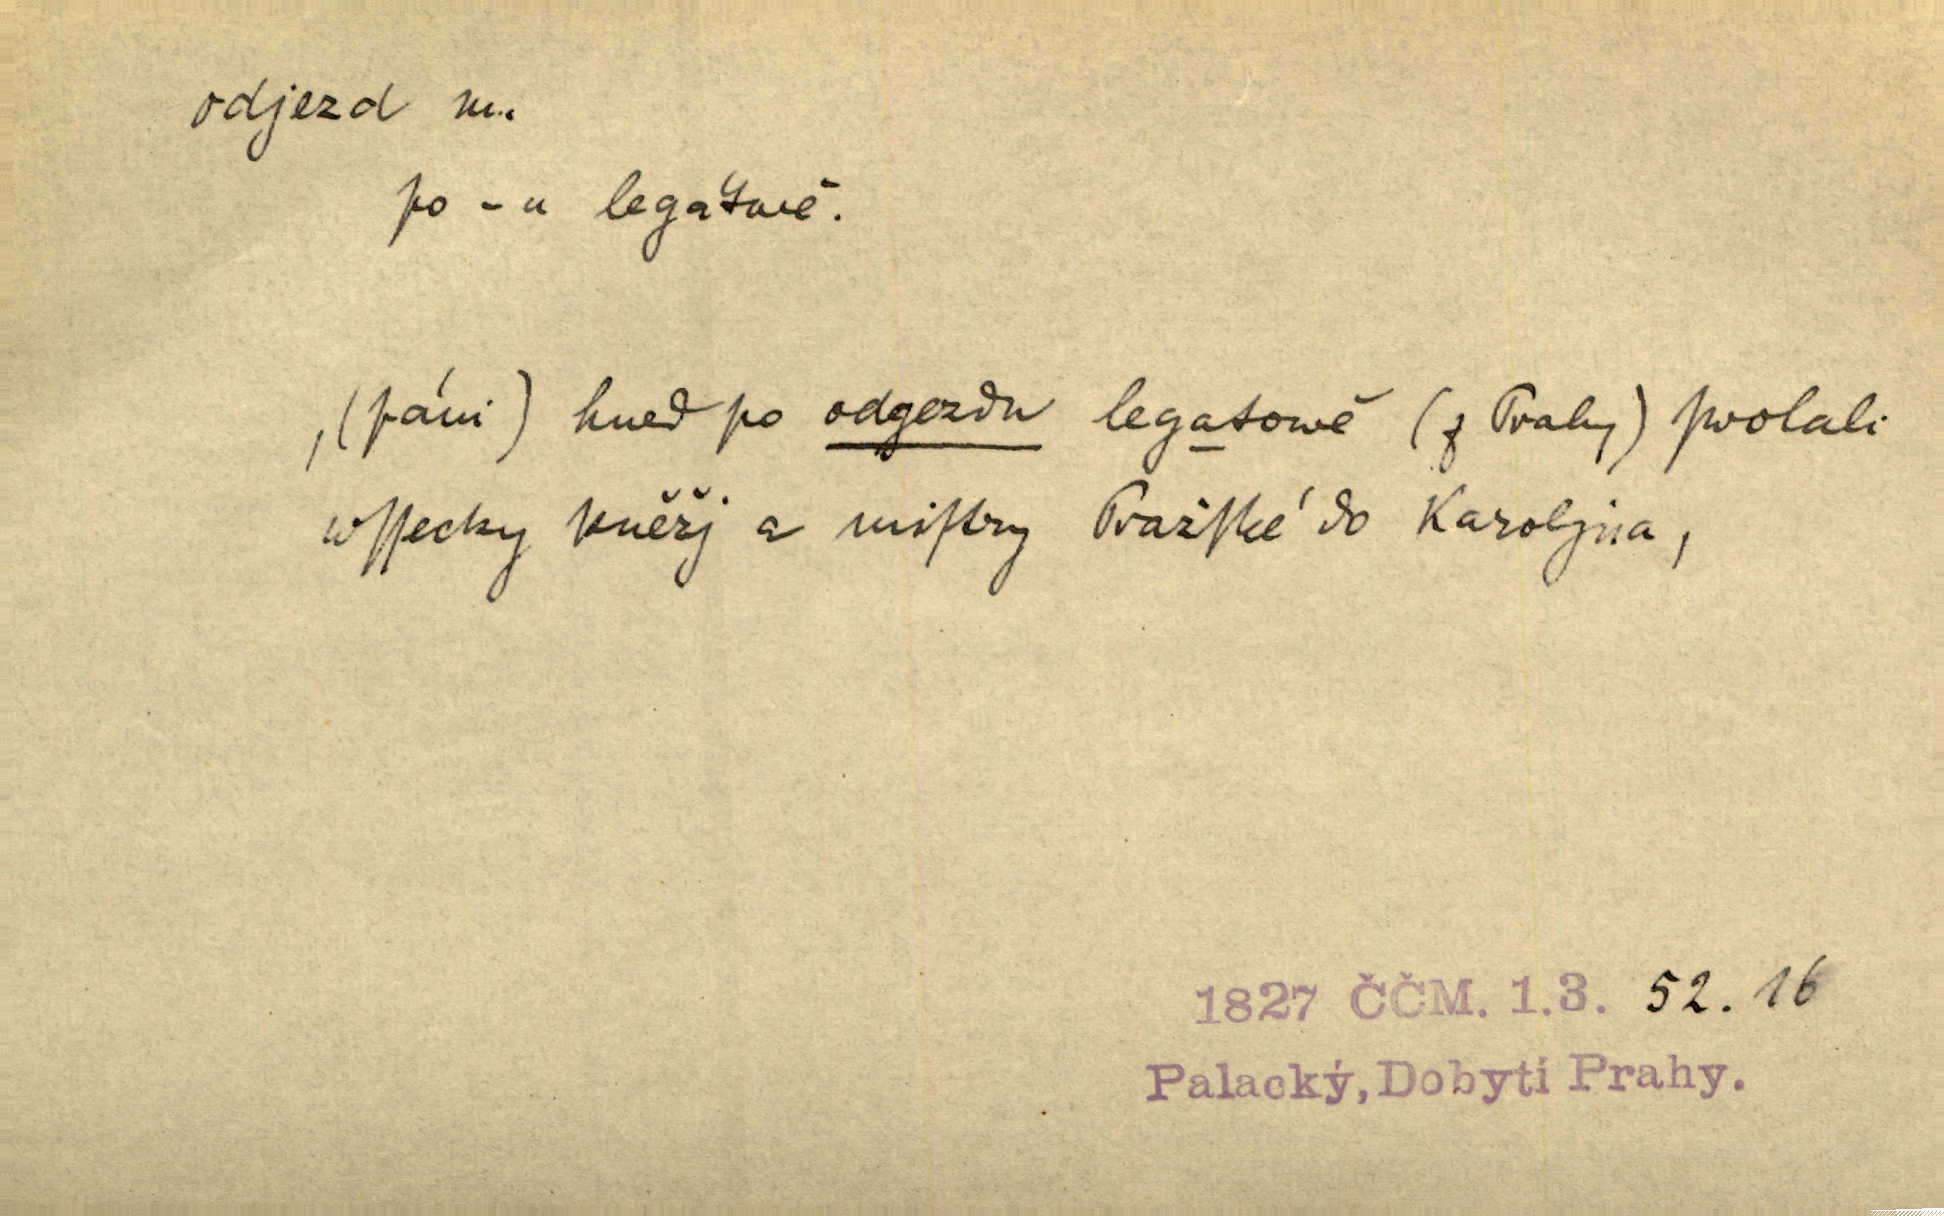 odjezd m.
po -u legátově.
‚(páni) hned po odgezdu legatowě (z Prahy) swolali
wssecky kněžj a mistry Pražské do Karoljna‚
1827 ČČM. 1.3. 52. 16
Palacký, Dobytí Prahy.